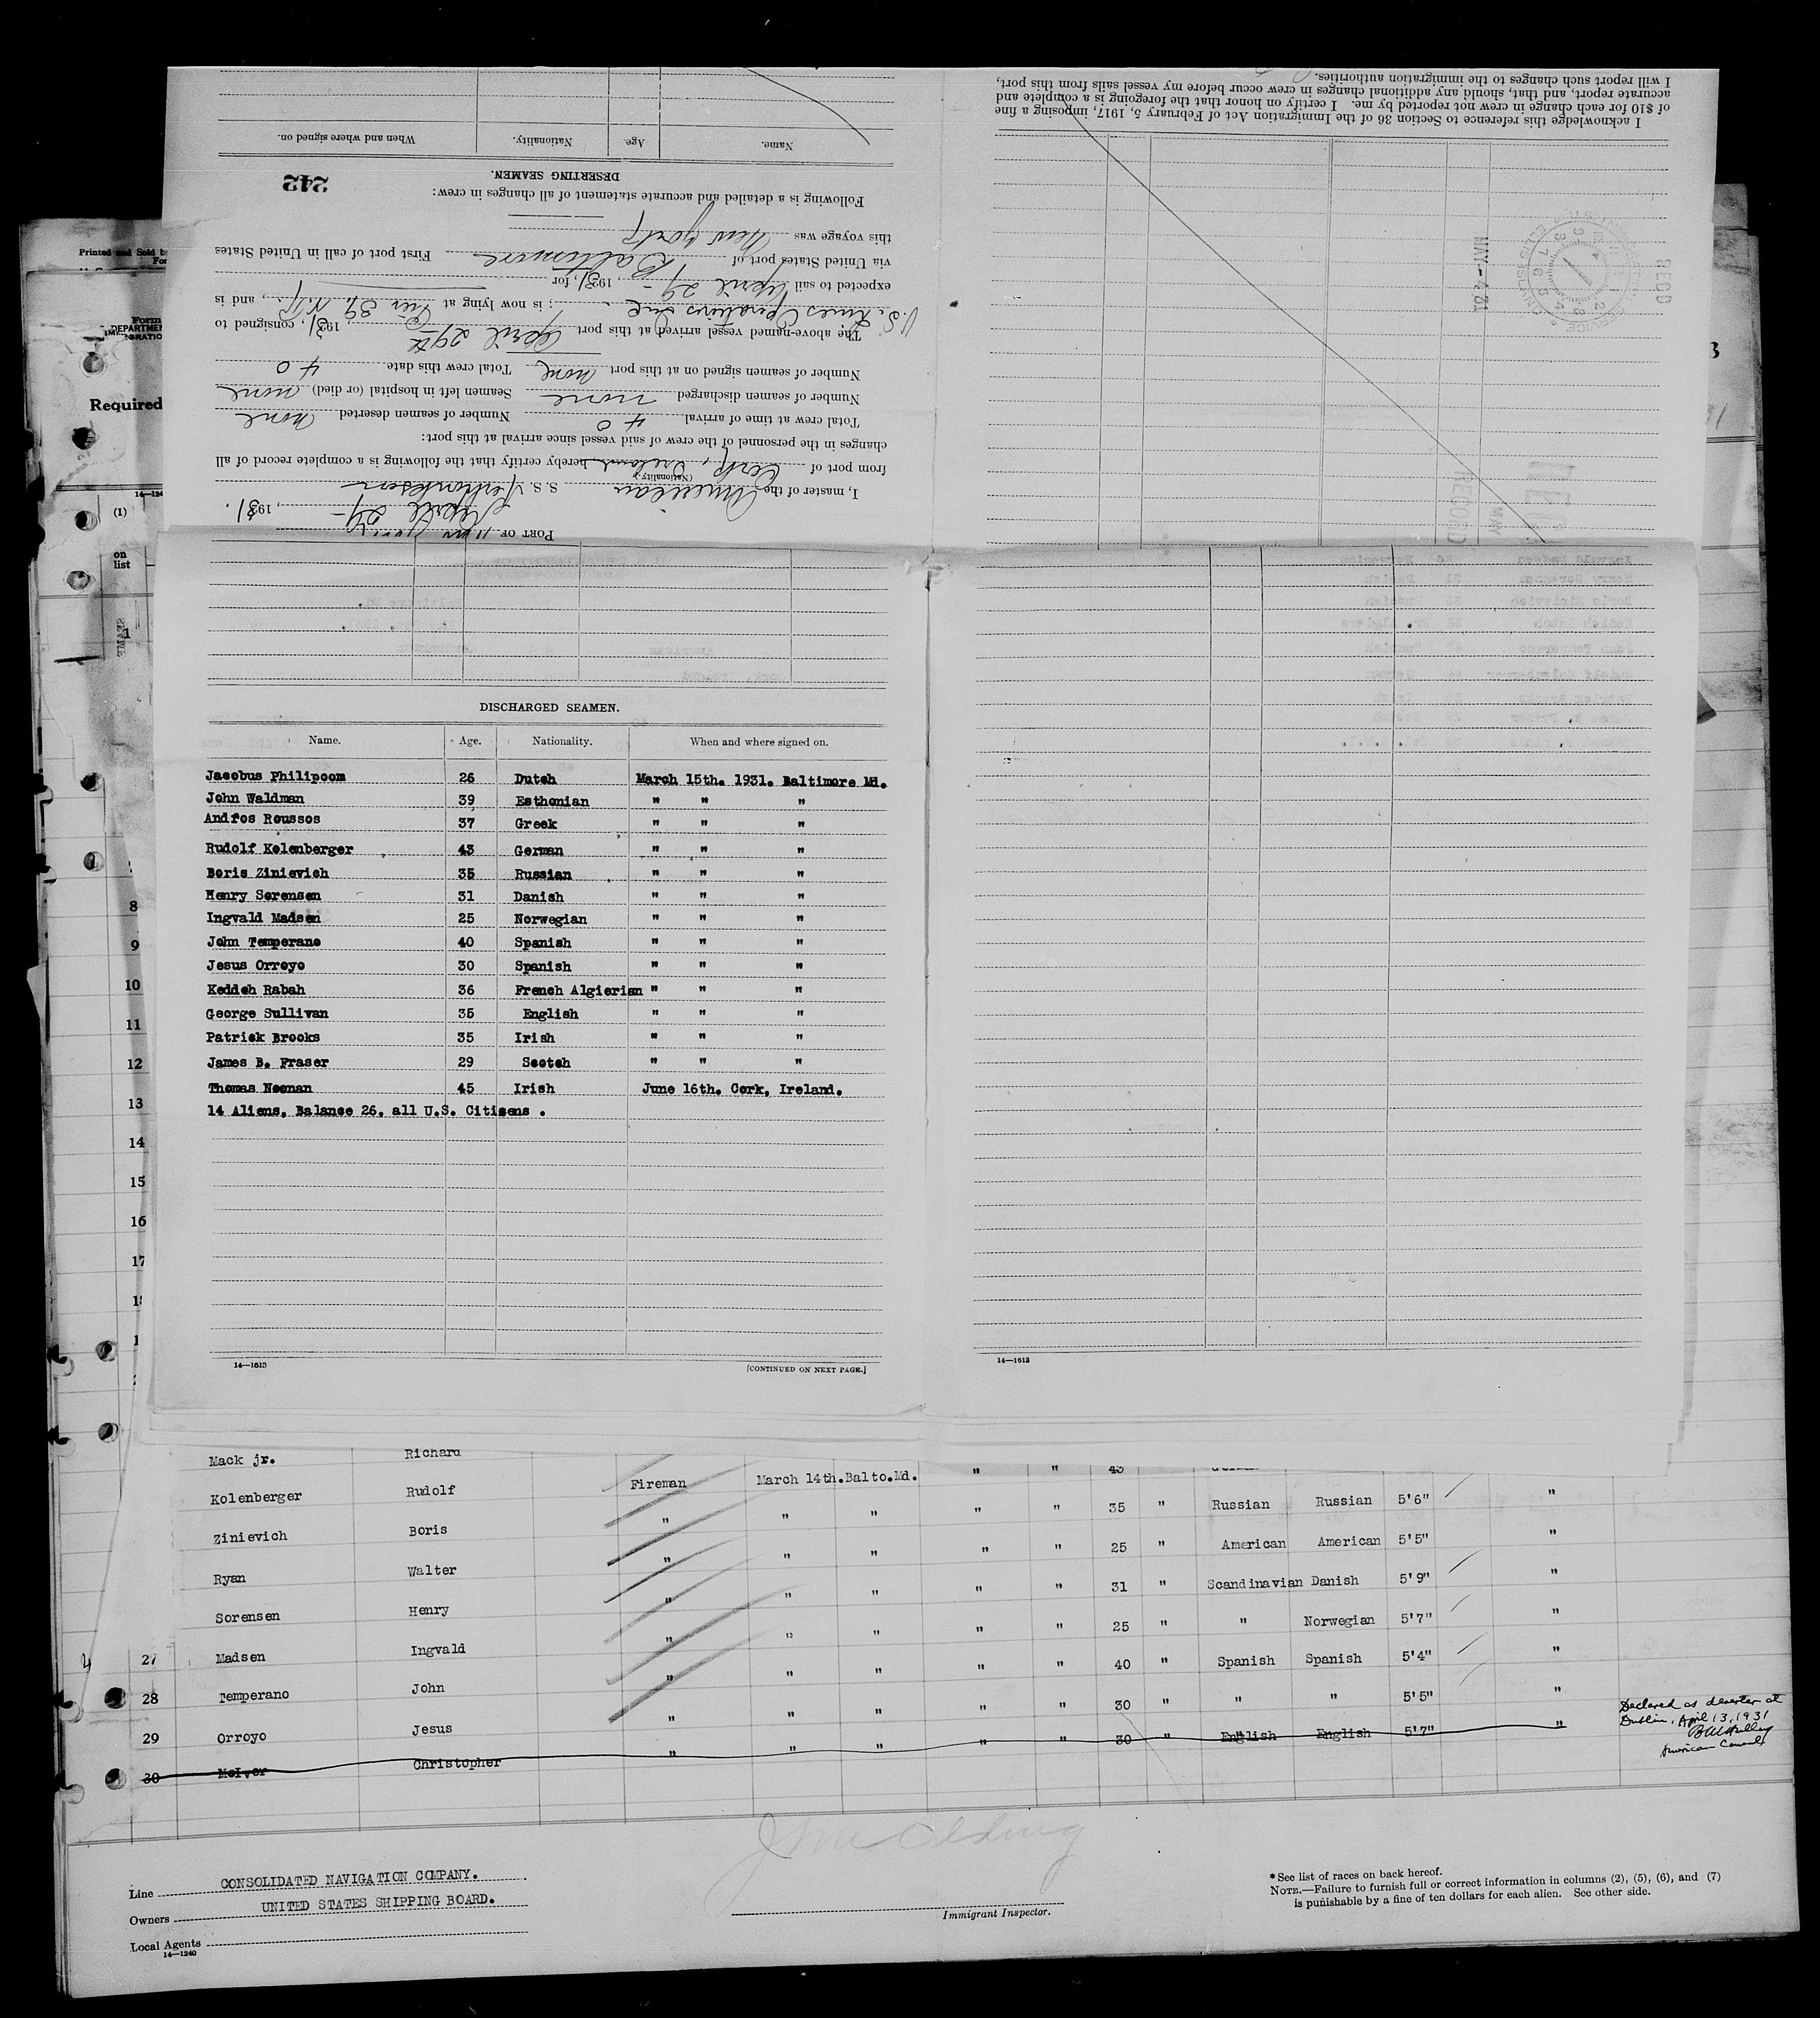 Printed and Sold b
Form
DEPARTMEN
Required
14—124
(1)
on
list
I acknowledge this reference to Section 36 of the Immigration Act of February 5, 1917, imposing a fine
of $10 for each change in crew not reported by me. I certify on honor that the foregoing is a complete and
accurate report, and that, should any additional changes in crew occur before my vessel sails from this port,
I will report such changes to the immigration authorities.
REC'D
MAY - 4 31
PORT OF New York
April 29 - , 1931.
I, master of the American S. S.
(Nationality.)
from port of Cork, Ireland hereby certify that the following is a complete record of all
changes in the personnel of the crew of said vessel since arrival at this port:
Total crew at time of arrival 40 Number of seamen deserted none
Number of seamen discharged none Seamen left in hospital (or died) none
Number of seamen signed on at this port none Total crew this date 40
The above-named vessel arrived at this port April 29th, 1931, consigned to
U.S. Lines Operations Inc ; is now lying at Pier 39, N.Y., and is
expected to sail April 29 -, 1931, for
via United States port of Baltimore First port of call in United States
this voyage was New York
Following is a detailed and accurate statement of all changes in crew:
242
DESERTING SEAMEN.
Name. Age. Nationality. When and where signed on.
DISCHARGED SEAMEN.
Name. Age. Nationality. When and where signed on.
Jacobus Philipoom 26 Dutch March 15th. 1931. Baltimore Md.
John Waldman 39 Esthonian " " "
Andros Roussos 37 Greek " " "
Rudolf Kolenberger 43 German " " "
Boris Zinievich 35 Russian " " "
Henry Sorensen 31 Danish " " "
Ingvald Madsen 25 Norwegian " " "
John Temperano 40 Spanish " " "
Jesus Orroyo 30 Spanish " " "
Keddeh Rabah 36 French Algierian " " "
George Sullivan 35 English " " "
Patrick Brooks 35 Irish " " "
James B. Fraser 29 Scotch " " "
Thomas Noonan 45 Irish June 16th. Cork, Ireland.
14 Aliens, Balance 26, all U.S. Citizens .
14—1613 [CONTINUED ON NEXT PAGE.]
14—1613
8
9
10
11
12
13
14
15
16
17
Mack jr. Richard
Kolenberger Rudolf Fireman March 14th. Balto. Md. " " 43
Zinievich Boris " " " " " 35 " Russian Russian 5'6" "
Ryan Walter " " " " " 25 " American American 5'5" "
Sorensen Henry " " " " " 31 " Scandinavian Danish 5'9" "
27 Madsen Ingvald " " " " " 25 " " Norwegian 5'7" "
28 Temperano John " " " " " 40 " Spanish Spanish 5'4" "
29 Orroyo Jesus " " " " " 30 " " " 5'5" "
30 McIver Christopher " " " " " 30 " English English 5'7" "
Declared as deserter at
Dublin, April 13, 1931
American Consul
Line CONSOLIDATED NAVIGATION COMPANY.
Owners UNITED STATES SHIPPING BOARD.
Local Agents
14—1240
Immigrant Inspector.
* See list of races on back hereof.
NOTE.—Failure to furnish full or correct information in columns (2), (5), (6), and (7)
is punishable by a fine of ten dollars for each alien. See other side.